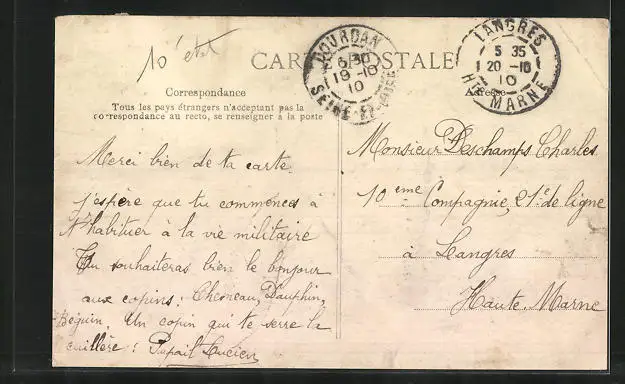 10 e état
CARTE POSTALE
DOURDAN
6 30
19 -10
10
SEINE-ET-OISE
LANGRES
5 35
20 -10
10
HTE MARNE
Correspondance
Tous les pays étrangers n'acceptant pas la
correspondance au recto, se renseigner à la poste
Adresse
Merci bien de ta carte.
j'espère que tu commences à
t'habituer à la vie militaire
Tu souhaiteras bien le bonjour
aux copins: Cheneau, Dauphin,
Béguin. Un copin qui te serre la
cuillère: Papail Lucien
Monsieur Deschamps Charles
10eme Compagnie, 21e de ligne
à Langres
Haute Marne